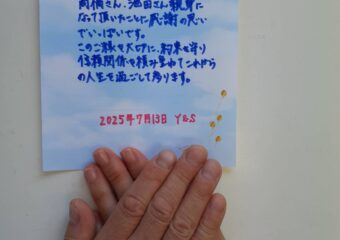 さん、池田さん親身に
なって頂いたことに感謝の思い
でいっぱいです。
このご縁を大切に、約束を守り
信頼関係を積み重ねてこれから
の人生を過ごして参ります。
2025年7月13日 Y&S